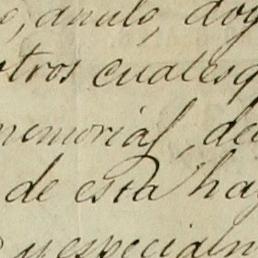 o, anulo, doy
otros cualesq
memorial, de
de esta hay
y especialm